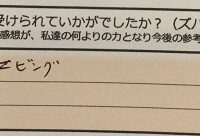 受けられていかがでしたか？（ズバ
感想が、私達の何よりの力となり今後の参考
ビング